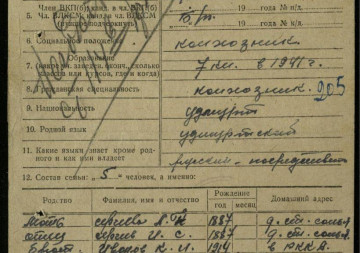 Член ВКП(б), канд. в чл. ВКП(б) 19 года № п/б.
5. Чл. ВЛКСМ, канд. в чл. ВЛКСМ б/п. 19 года № ч/б.
(нужное подчеркнуть)
6. Социальное положение колхозник
7. Образование 7 кл. в 1941 г.
классов или курсов, где и когда)
8. Гражданская специальность колхозник. 205
9. Национальность удмурт
10. Родной язык удмуртский
11. Какие языки знает кроме родного и как ими владеет русский - посредственно
12. Состав семьи: "5" человек, а именно:
Родство Фамилия, имя и отчество Рождение Домашний адрес
год месяц
мать 1887
отец И. С. 1887
брат К. И. 1914 в РККА